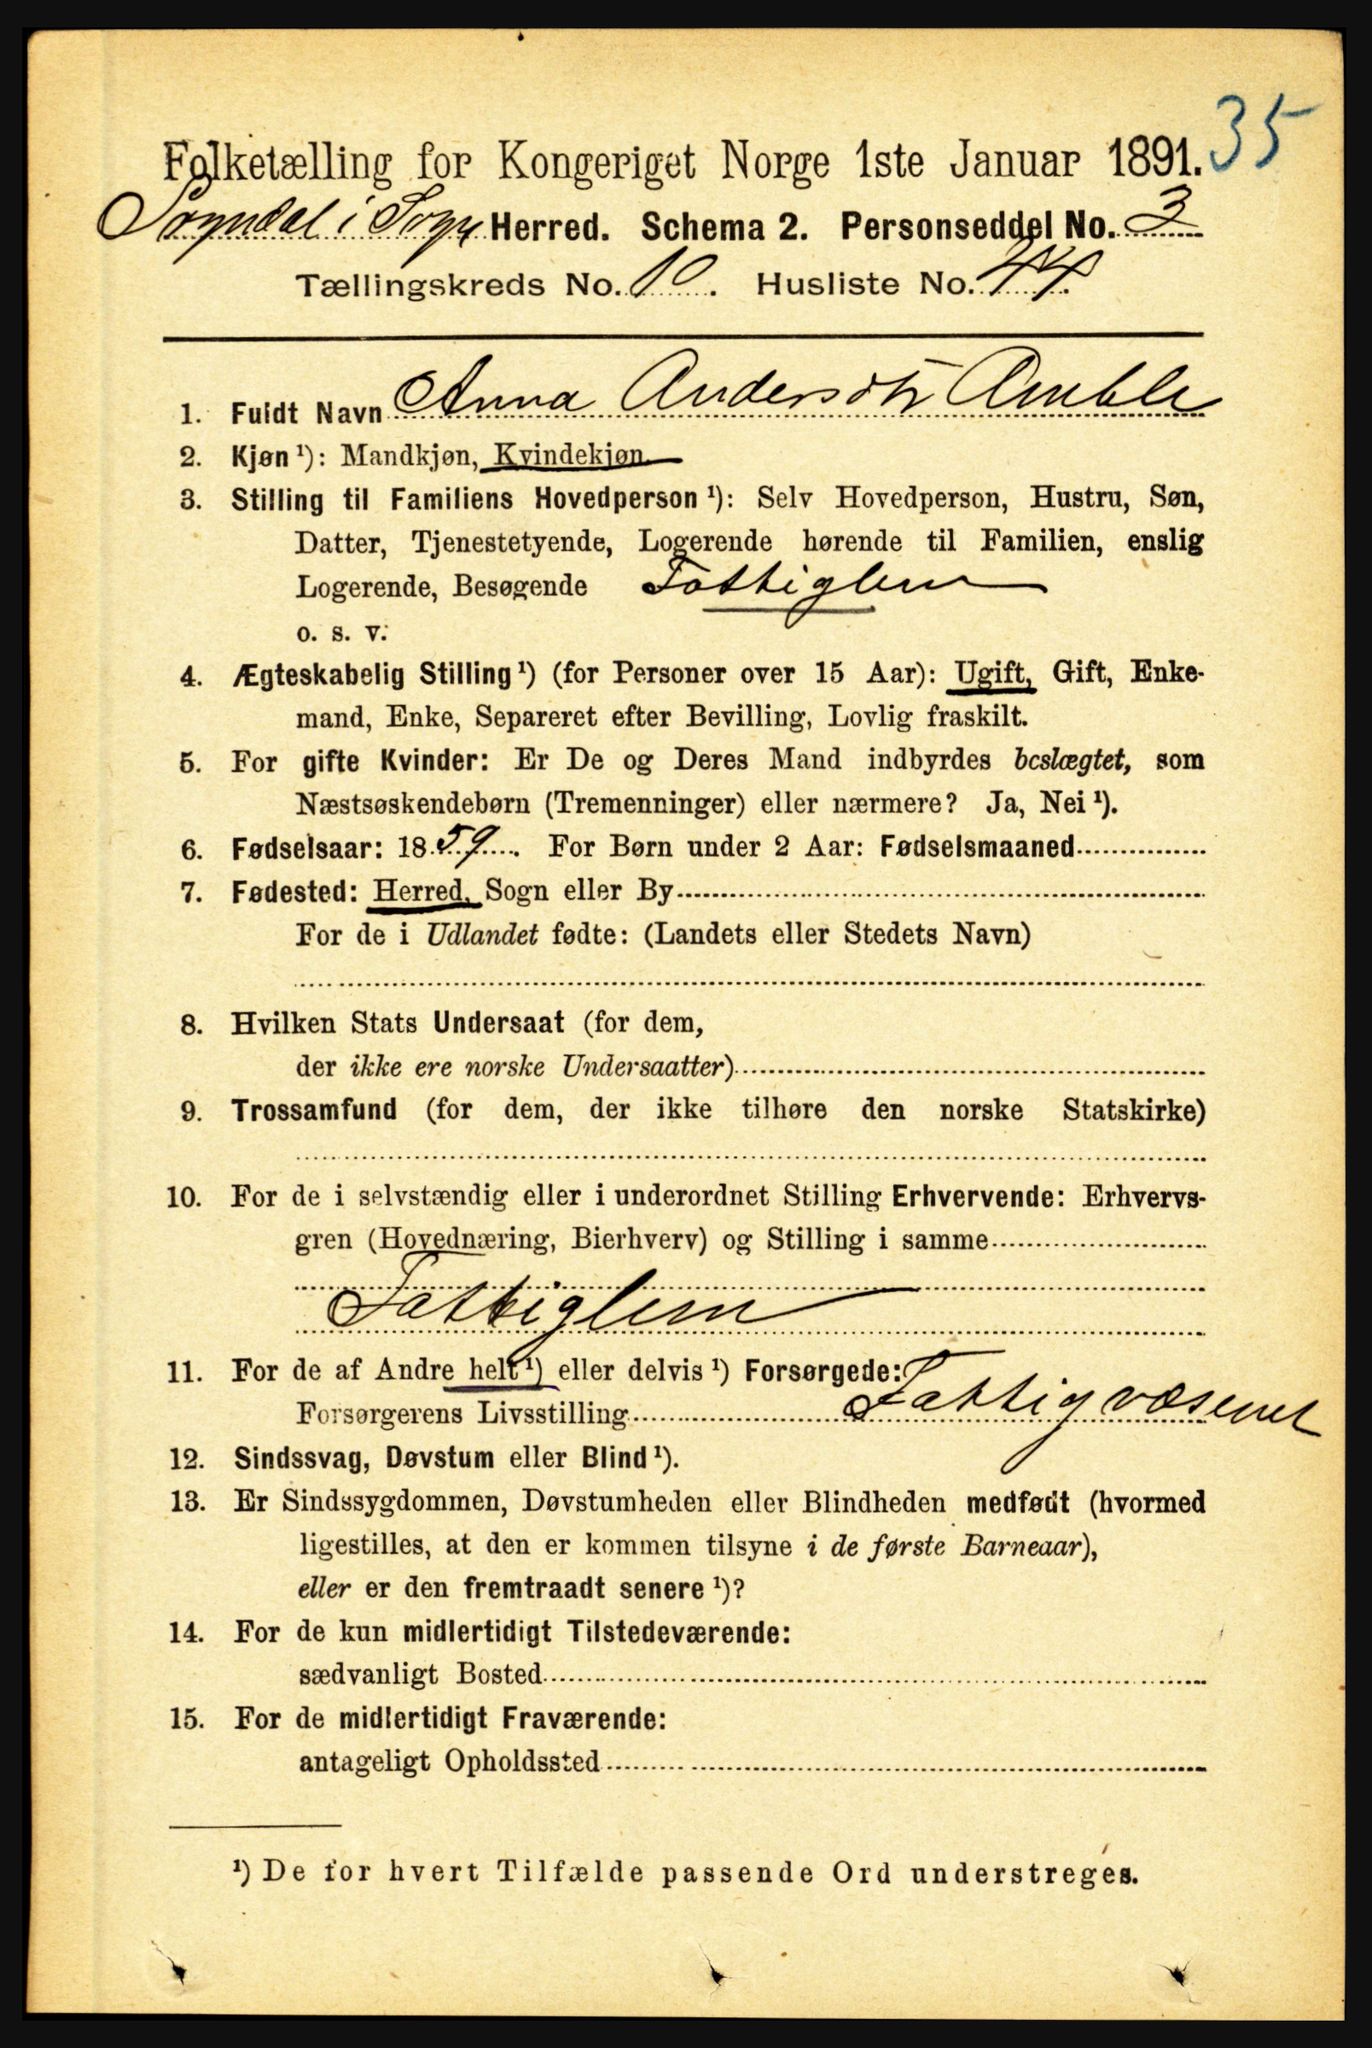 35
Folketælling for Kongeriget Norge 1ste Januar 1891.
Sogndal i Sogn Herred. Schema 2. Personseddel No. 3
Tællingskreds No. 10. Husliste No. 44.
1. Fuldt Navn Anna Andersdtr Amble
2. Kjøn¹): Mandkjøn, Kvindekjøn
3. Stilling til Familiens Hovedperson¹): Selv Hovedperson, Hustru, Søn,
Datter, Tjenestetyende, Logerende hørende til Familien, enslig
Logerende, Besøgende Fattiglem
o. s. v.
4. Ægteskabelig Stilling¹) (for Personer over 15 Aar): Ugift, Gift, Enke-
mand, Enke, Separeret efter Bevilling, Lovlig fraskilt.
5. For gifte Kvinder: Er De og Deres Mand indbyrdes beslægtet, som
Næstsøskendebørn (Tremenninger) eller nærmere? Ja, Nei¹).
6. Fødselsaar: 1859. For Børn under 2 Aar: Fødselsmaaned
7. Fødested: Herred, Sogn eller By
For de i Udlandet fødte: (Landets eller Stedets Navn)
8. Hvilken Stats Undersaat (for dem,
der ikke ere norske Undersaatter)
9. Trossamfund (for dem, der ikke tilhøre den norske Statskirke)
10. For de i selvstændig eller i underordnet Stilling Erhvervende: Erhvervs-
gren (Hovednæring, Bierhverv) og Stilling i samme
Fattiglem
11. For de af Andre helt¹) eller delvis¹) Forsørgede:
Forsørgerens Livsstilling Fattigvæsenet
12. Sindssvag, Døvstum eller Blind¹).
13. Er Sindssygdommen, Døvstumheden eller Blindheden medfødt (hvormed
ligestilles, at den er kommen tilsyne i de første Barneaar),
eller er den fremtraadt senere¹)?
14. For de kun midlertidigt Tilstedeværende:
sædvanligt Bosted
15. For de midlertidigt Fraværende:
antageligt Opholdssted
¹) De for hvert Tilfælde passende Ord understreges.